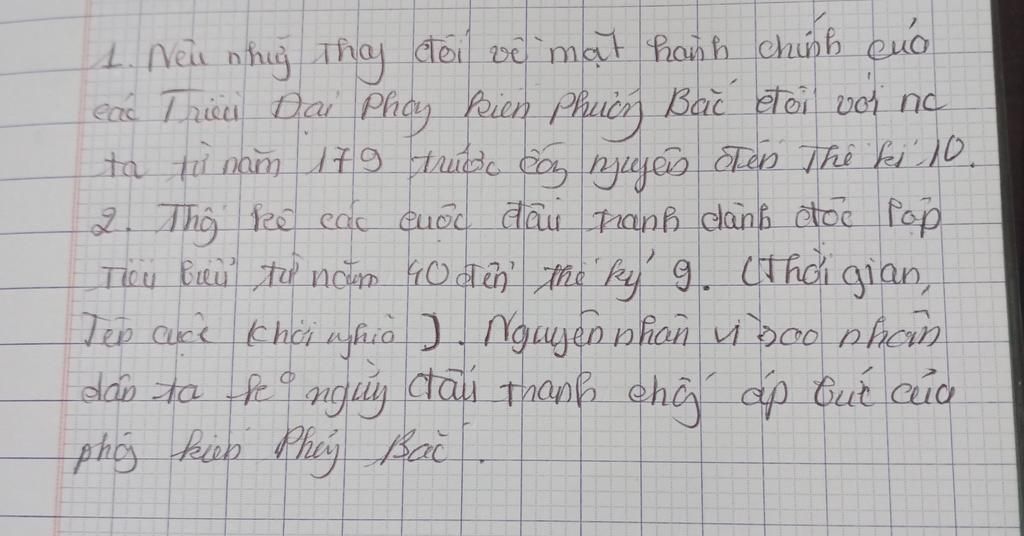 1. Nêu nhữg thay đổi về mặt hành chính của
các Triều Đại Phog kiến Phươg Bắc đối với nc
ta từ năm 179 trước côg nguyên đến Thế kỉ 10.
2. Thốg kê các cuộc đấu tranh dành độc lập
Tiêu Biểu từ năm 40 đến thế kỷ 9. (Thời gian,
Tên cuộc khởi nghĩa). Nguyên nhân vì sao nhân
dân ta k° ngừg đấu tranh chốg áp bức của
phog kiến Phươg Bắc.